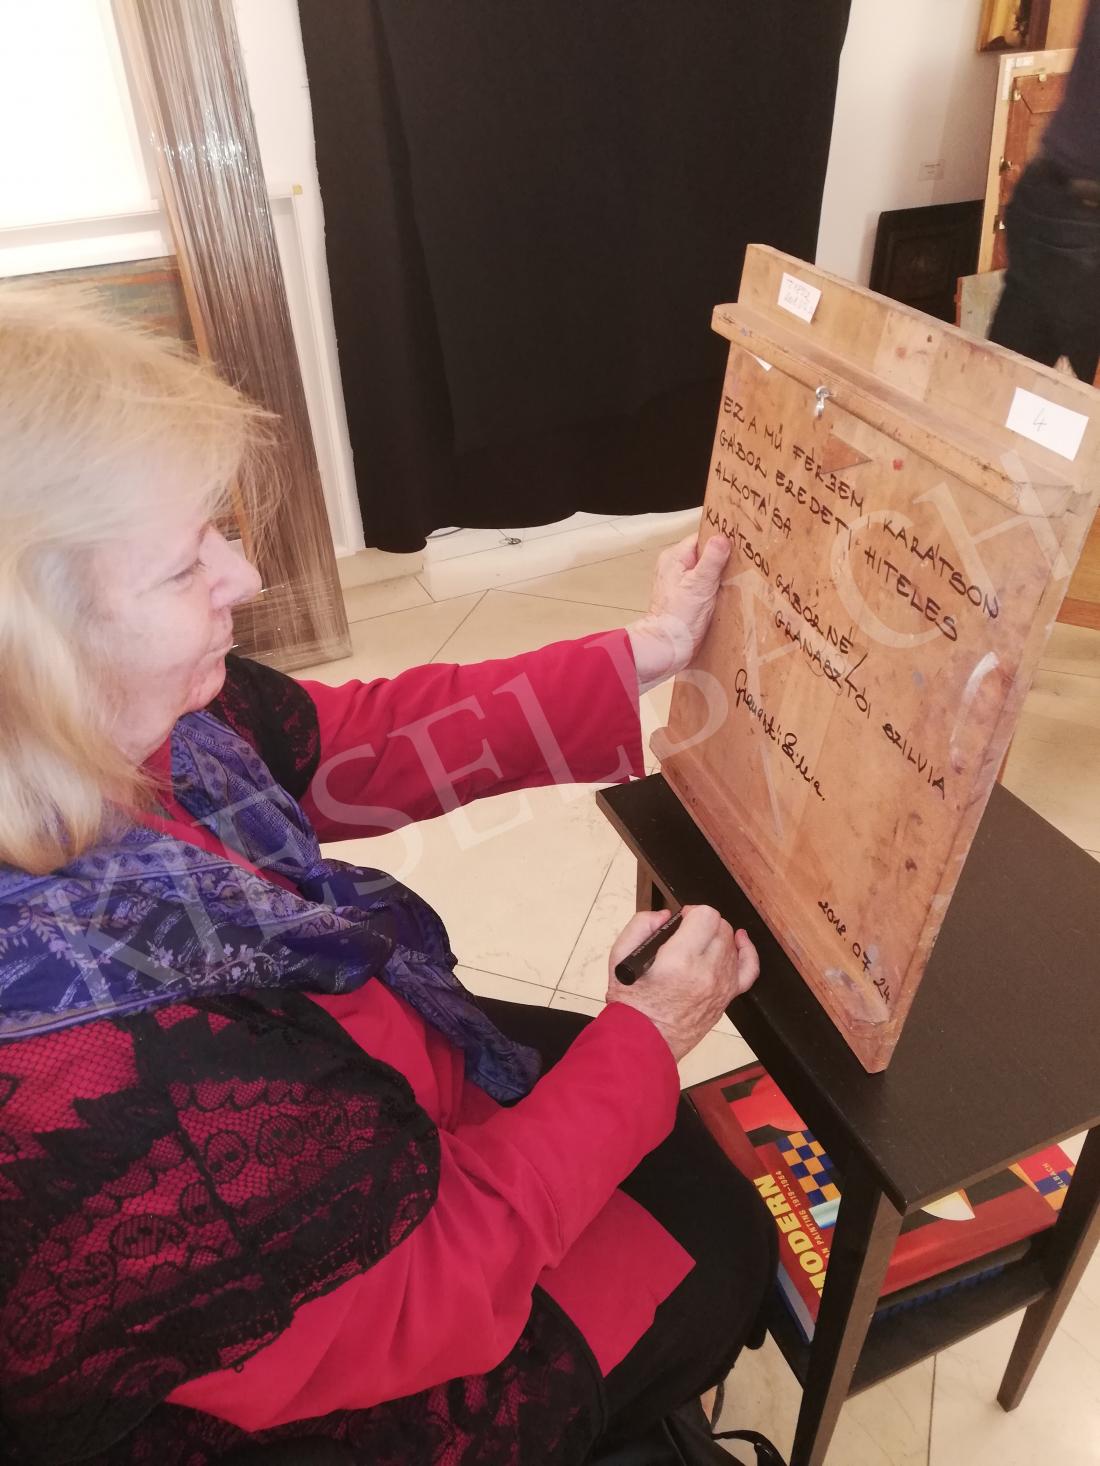 4
EZ A MŰ FÉRJEM, KARÁTSON
GÁBOR EREDETI HITELES
ALKOTÁSA
KARÁTSON GÁBORNÉ/
GRANASZTÓI SZILVIA
Granasztói Szilvia.
2018. 07. 24
KIESELBACH
MODERN
PAINTING 1919-1964